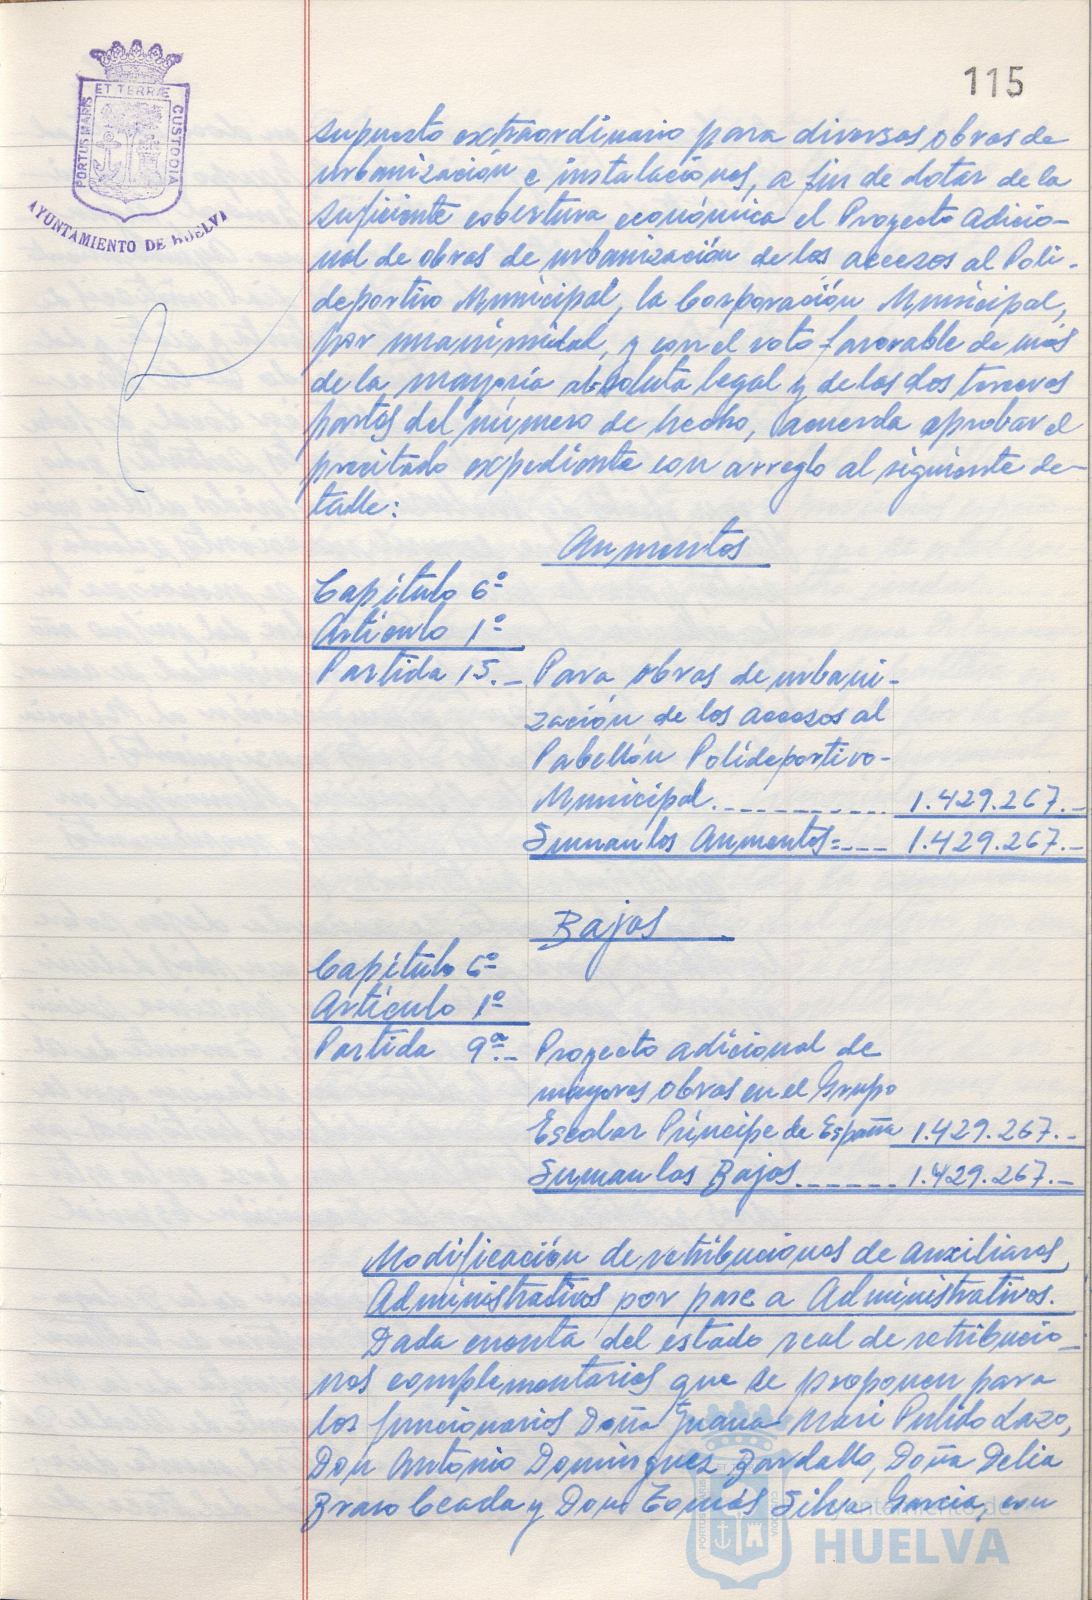 115
ET TERRÆ
PORTUS MARIS
CUSTODIA
AYUNTAMIENTO DE HUELVA
supuesto extraordinario para diversas obras de
urbanización e instalaciones, a fin de dotar de la
suficiente cobertura económica el Proyecto Adicio-
nal de obras de urbanización de los accesos al Poli-
deportivo Municipal, la Corporación Municipal,
por unanimidad, y con el voto favorable de más
de la mayoría absoluta legal y de las dos terceras
partes del número de hecho, acuerda aprobar el
precitado expediente con arreglo al siguiente de-
talle:
Aumentos
Capítulo 6º
Artículo 1º
Partida 15.- Para obras de urbani-
zación de los accesos al
Pabellón Polideportivo-
Municipal.----------- 1.429.267.-
Suman los Aumentos=--- 1.429.267.-
Bajas
Capítulo 6º
Artículo 1º
Partida 9ª.- Proyecto adicional de
mayores obras en el Grupo
Escolar Príncipe de España 1.429.267.-
Suman las Bajas------- 1.429.267.-
Modificación de retribuciones de Auxiliares
Administrativos por pase a Administrativos.
Dada cuenta del estado real de retribucio-
nes complementarias que se proponen para
los funcionarios Doña Juana Mari Pulido Lazo,
Don Antonio Domínguez Bardallo, Doña Delia
Bravo Ceada y Don Tomás Silva García, con
Ayuntamiento de
HUELVA